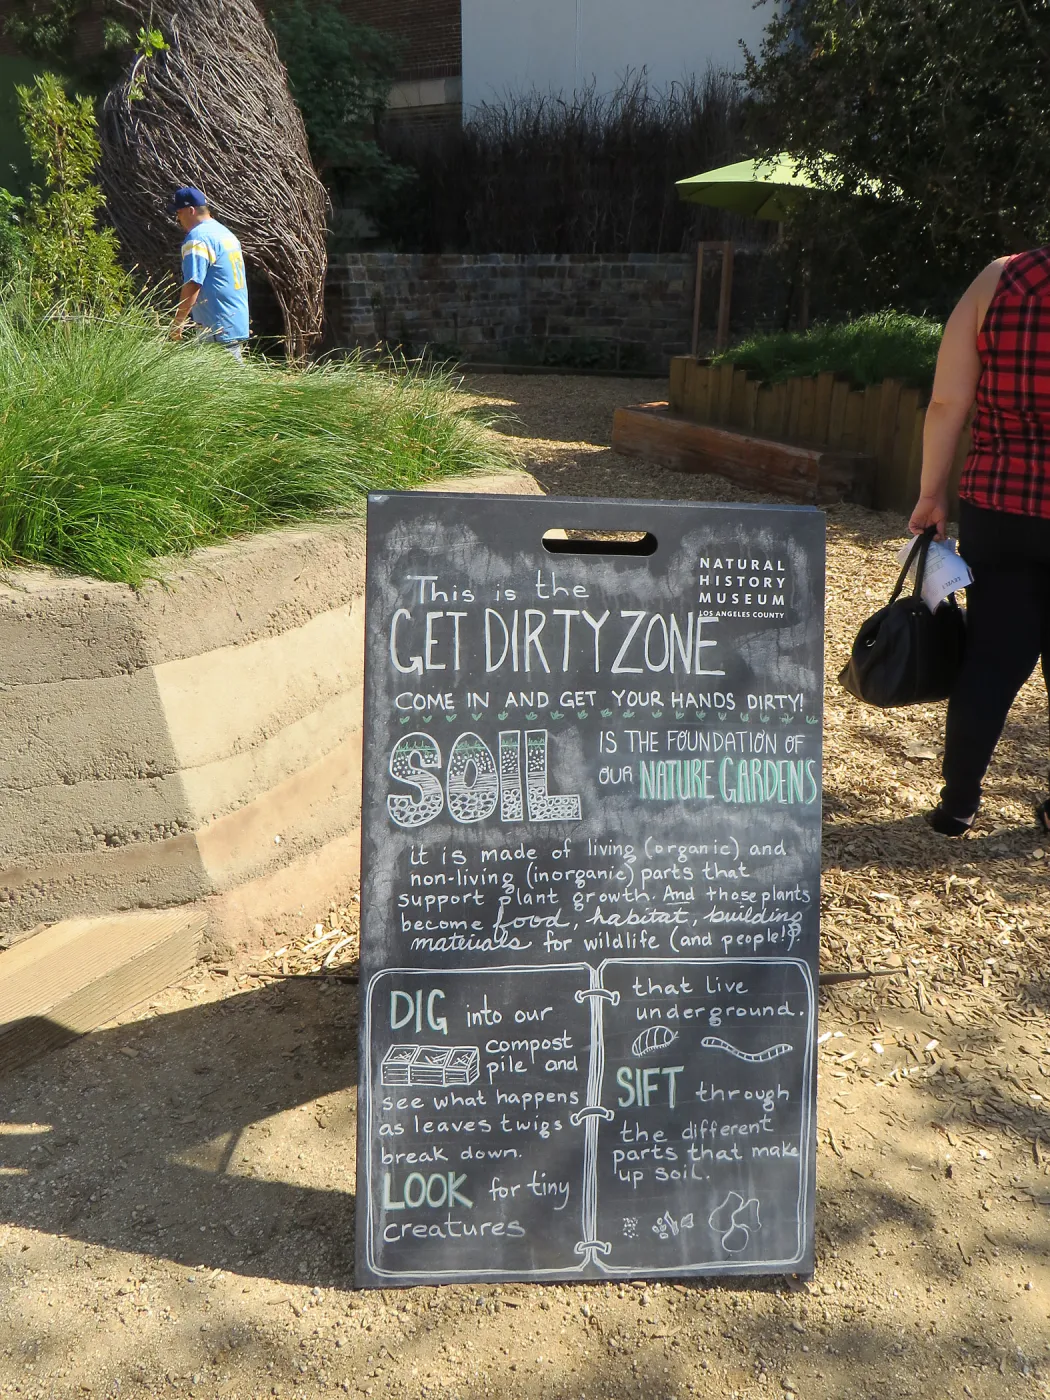 NATURAL
HISTORY
MUSEUM
LOS ANGELES COUNTY
This is the
GET DIRTY ZONE
COME IN AND GET YOUR HANDS DIRTY!
SOIL IS THE FOUNDATION OF
OUR NATURE GARDENS
it is made of living (organic) and
non-living (inorganic) parts that
support plant growth. And those plants
become food, habitat, building
materials for wildlife (and people!).
DIG into our
compost
pile and
see what happens
as leaves twigs
break down.
LOOK for tiny
creatures
that live
underground.
SIFT through
the different
parts that make
up soil.